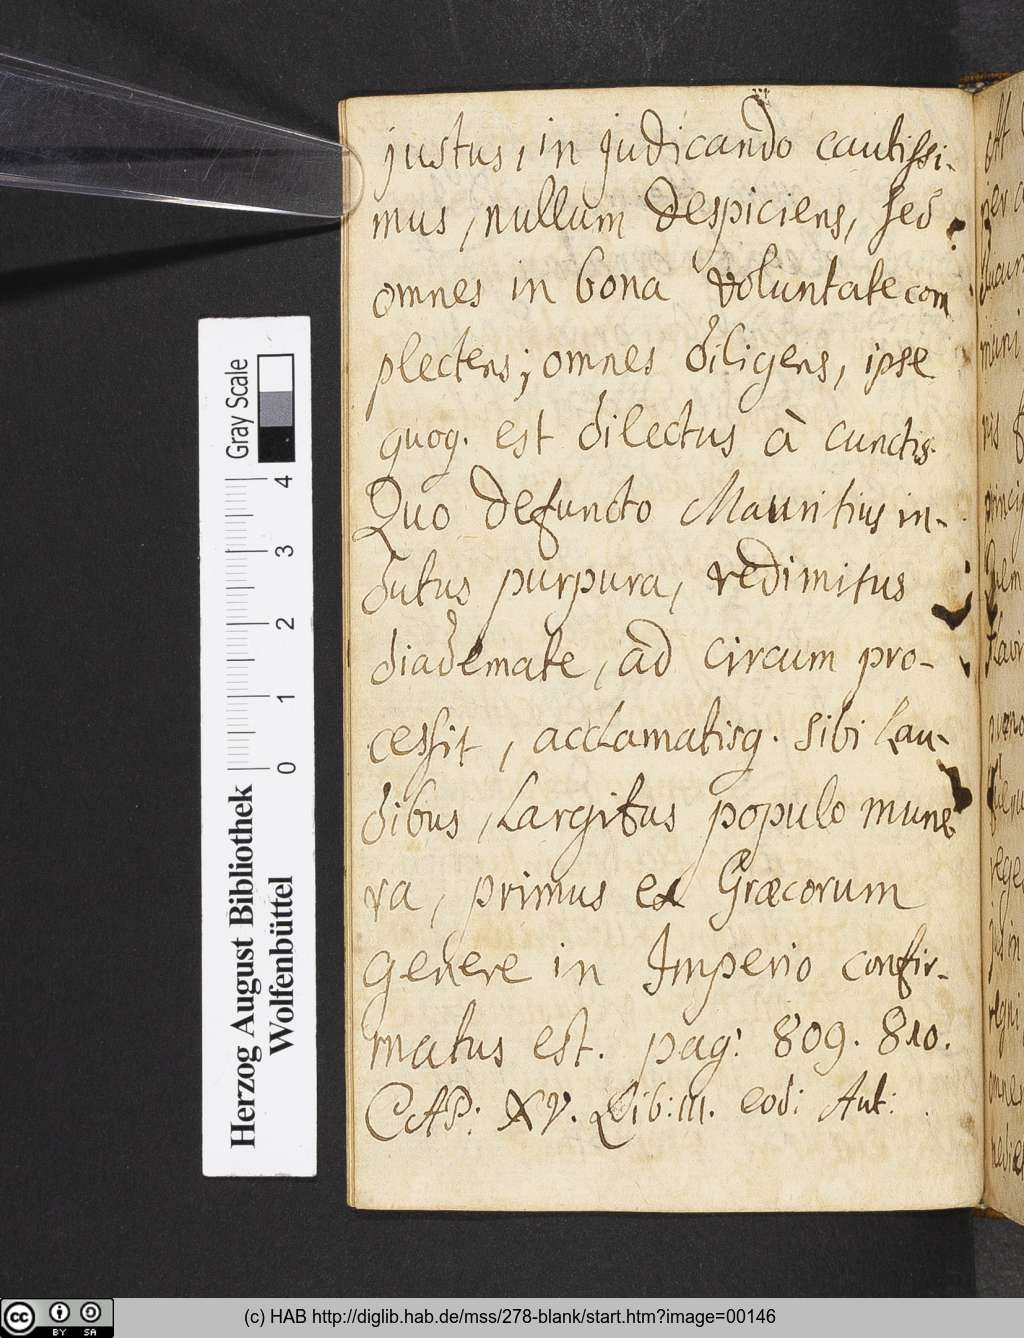 justus, in judicando cautissi-
mus, nullum despiciens, sed
omnes in bona voluntate com
plectens; omnes diligens, ipse
quoq. est dilectus à cunctis.
Quo defuncto Mauritius in-
dutus purpura, redimitus
diademate, ad circum pro-
cessit, acclamatisq. sibi lau-
dibus, largitus populo mune
ra, primus ex Græcorum
genere in Imperio confir-
matus est. pag: 809. 810.
CAP: XV. Lib: III. eod: Aut:
Gray Scale
0 1 2 3 4
Herzog August Bibliothek
Wolfenbüttel
cc BY SA
(c) HAB http://diglib.hab.de/mss/278-blank/start.htm?image=00146